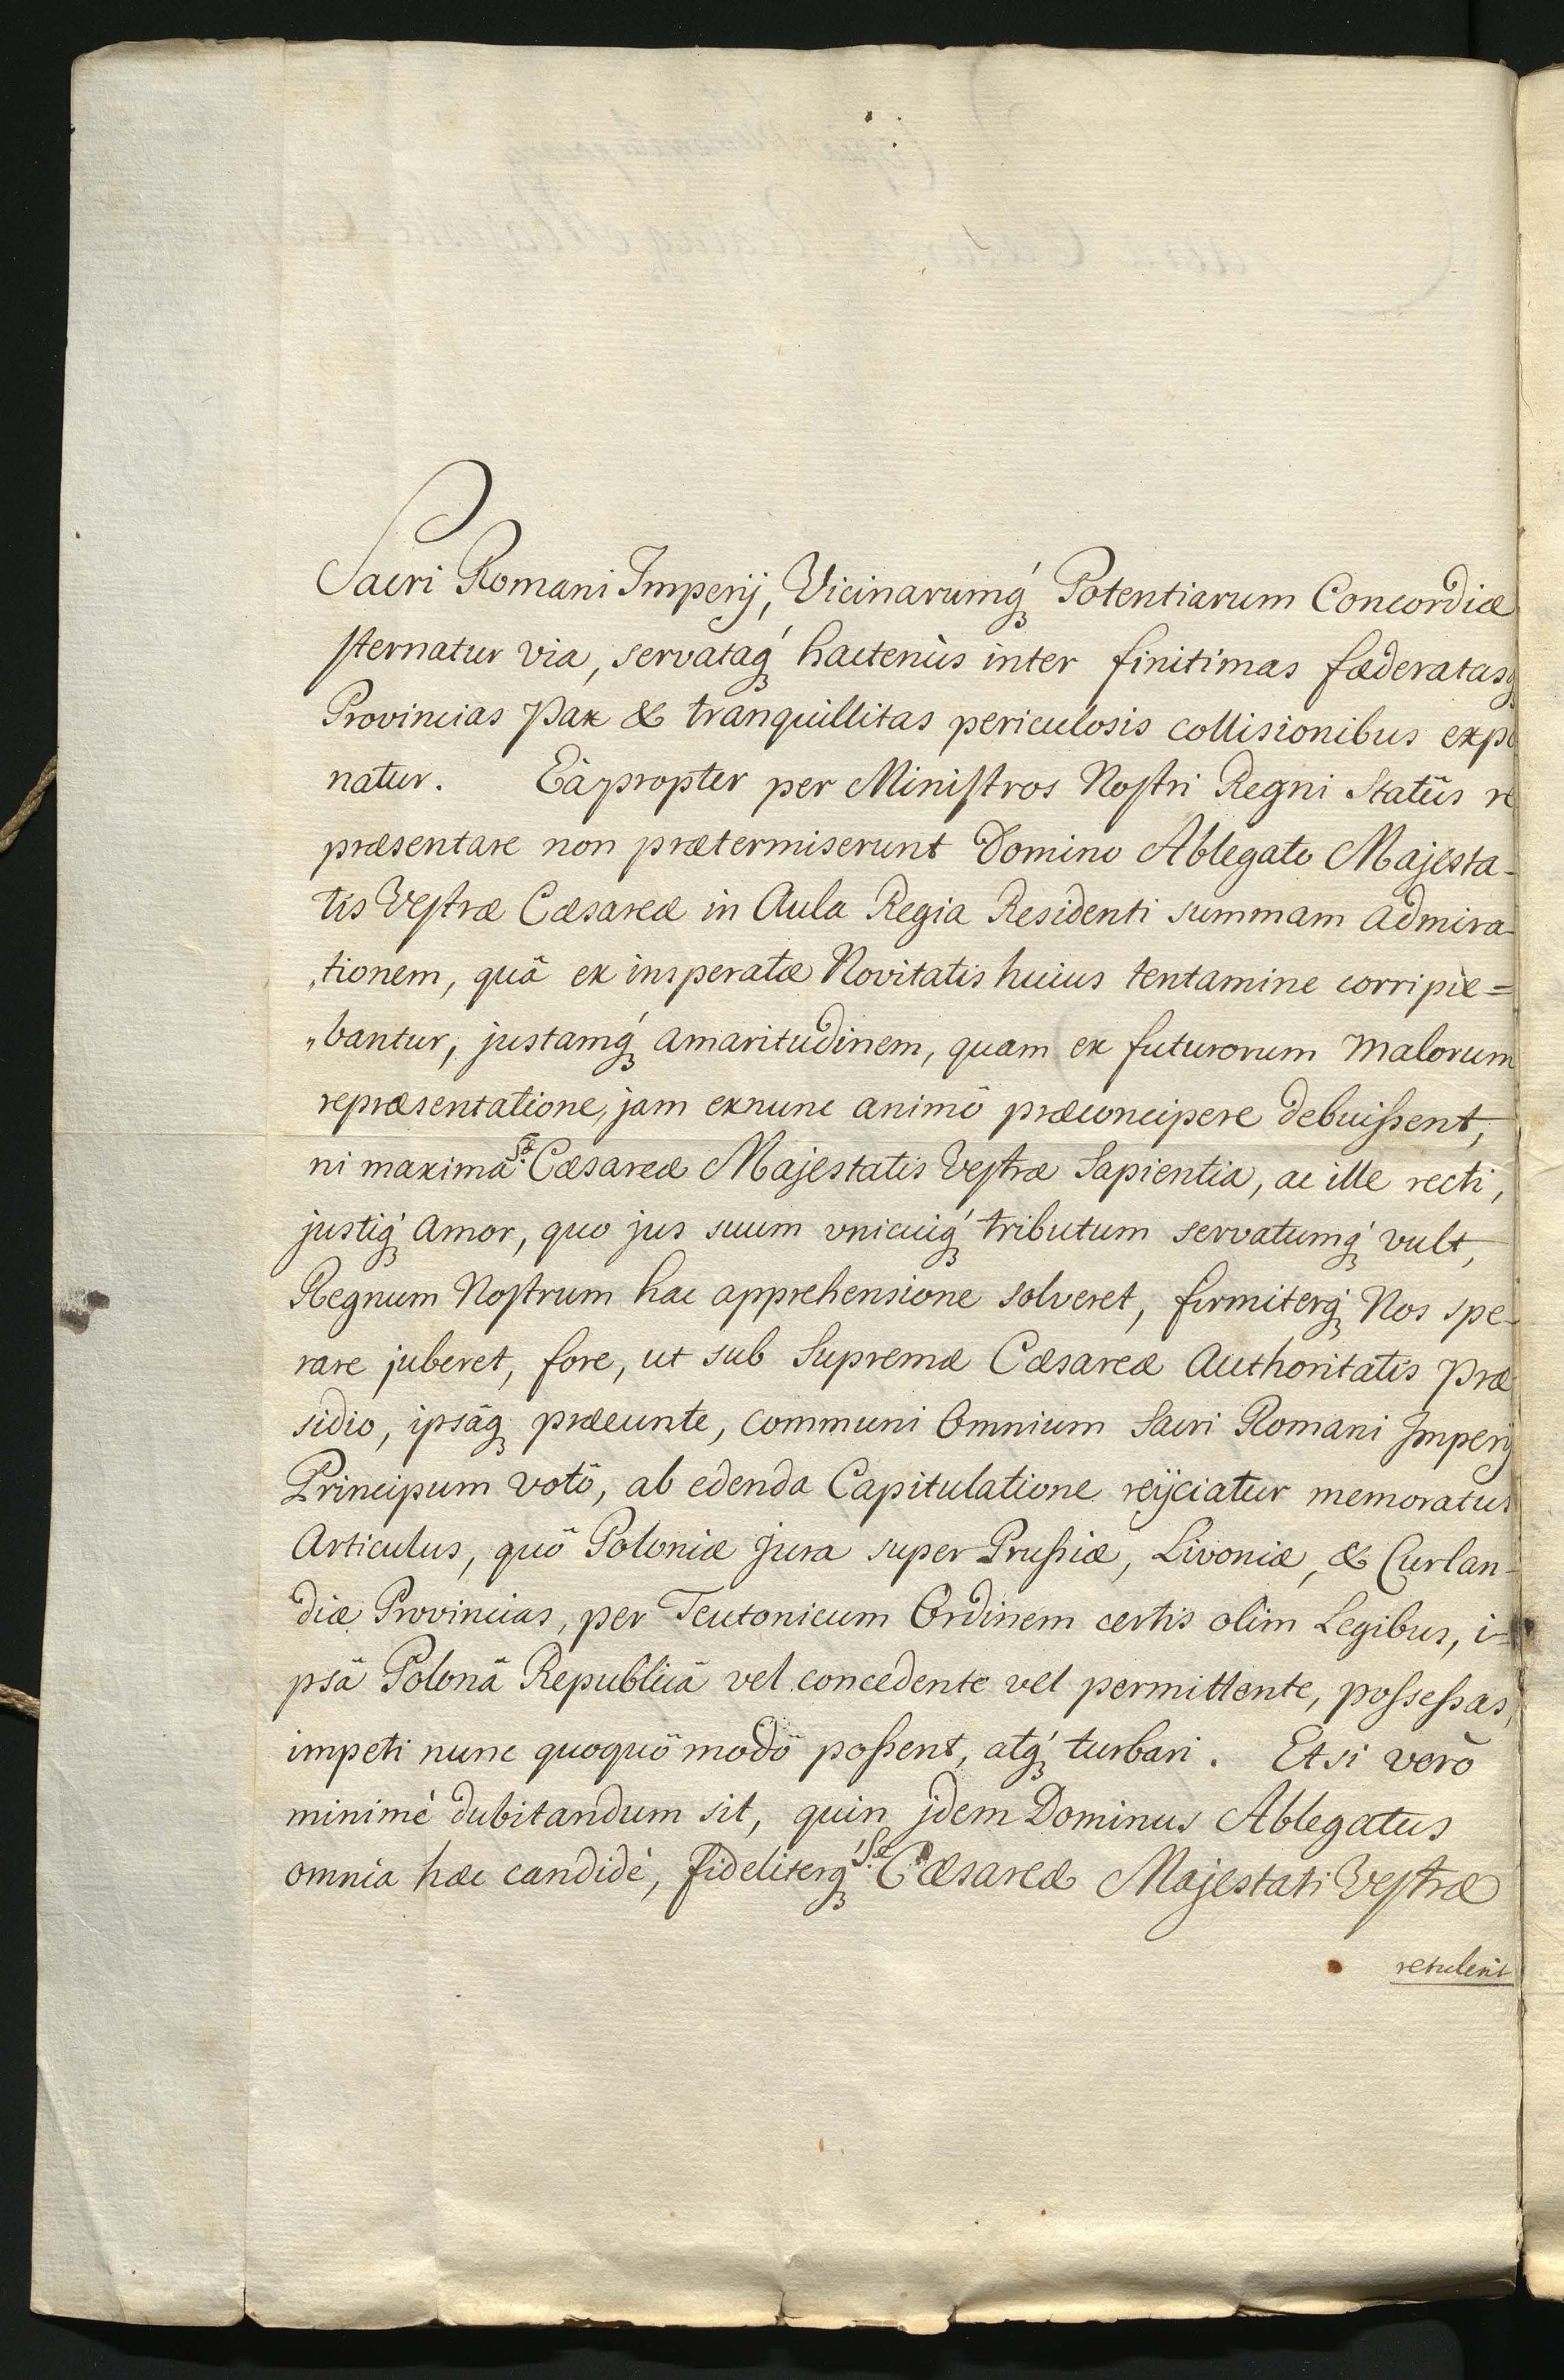 Sacri Romani Imperij, Vicinarumq́ Potentiarum Concordiæ
sternatur via, servataq́ hactenùs inter finitimas fæderatasq
Provincias pax & tranquillitas periculosis collisionibus expo
natur. Eàpropter per Ministros Nostri Regni Statûs re
præsentare non prætermiserunt Domino Ablegato Majesta-
tis Vestræ Cæsareæ in Aula Regia Residenti summam admira-
tionem, quâ ex insperatæ Novitatis huius tentamine corripie=
„bantur, justamq́ amaritudinem, quam ex futurorum malorum
repræsentatione, jam exnunc animô præconcipere debuissent,
ni maxima Sæ: Cæsareæ Majestatis Vestræ Sapientia, ac ille recti,
justiq́ amor, quo jus suum vnicuiq́ tributum servatumq́ vult,
Regnum Nostrum hac apprehensione solveret, firmiterq́ Nos spe-
rare juberet, fore, ut sub Supremæ Cæsareæ Authoritatis præ
sidio, ipsâq præeunte, communi Omnium Sacri Romani Imperij
Principum votô, ab edenda Capitulatione reijciatur memoratus
Articulus, quô Poloniæ jura super Prussiæ, Livoniæ, & Curlan-
diæ Provincias, per Teutonicum Ordinem certis olim Legibus, i=
psâ Polonâ Republicâ vel concedente vel permittente, possessas,
impeti nunc quoquô modô possent, atq́ turbari. Etsi verò
minimè dubitandum sit, quin jdem Dominus Ablegatus
omnia hæc candidè, fideliterq́ Sæ: Cæsareæ Majestati Vestræ
retulerit